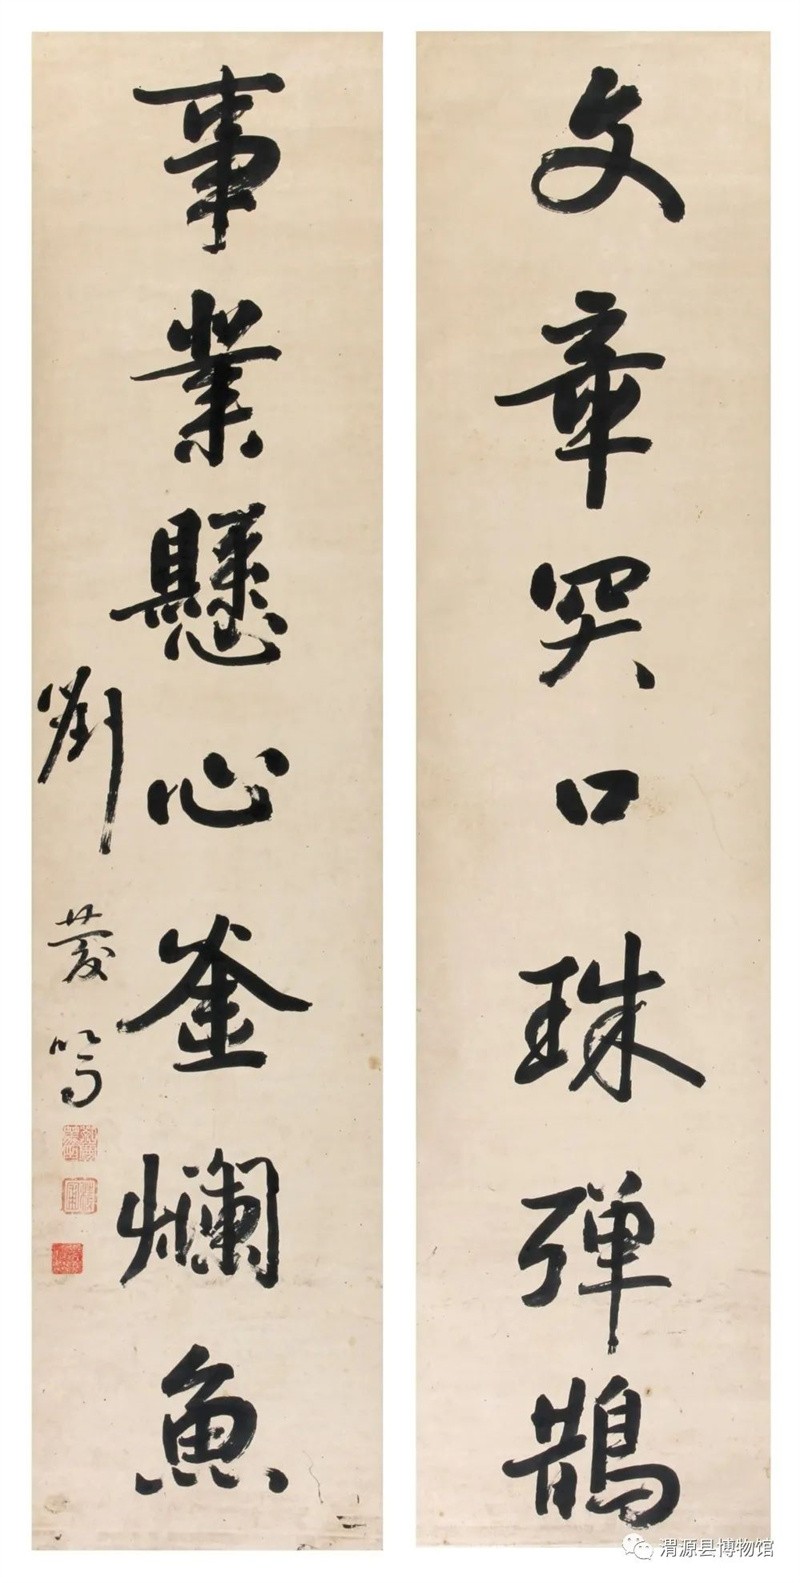 文章口珠弹鵲
事業懸心釜爛魚
劉慶篤
渭源县博物馆